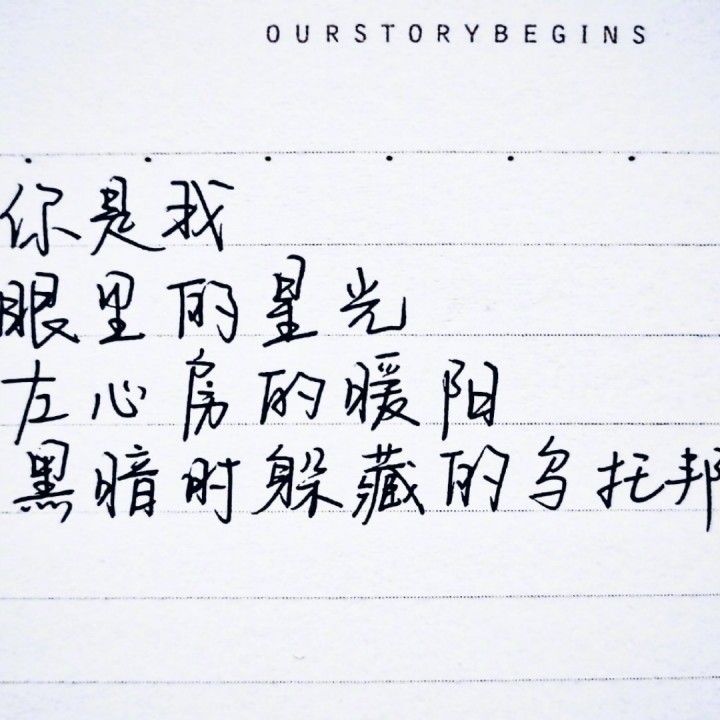 OURSTORYBEGINS
你是我
眼里的星光
左心房的暖阳
黑暗时躲藏的乌托邦